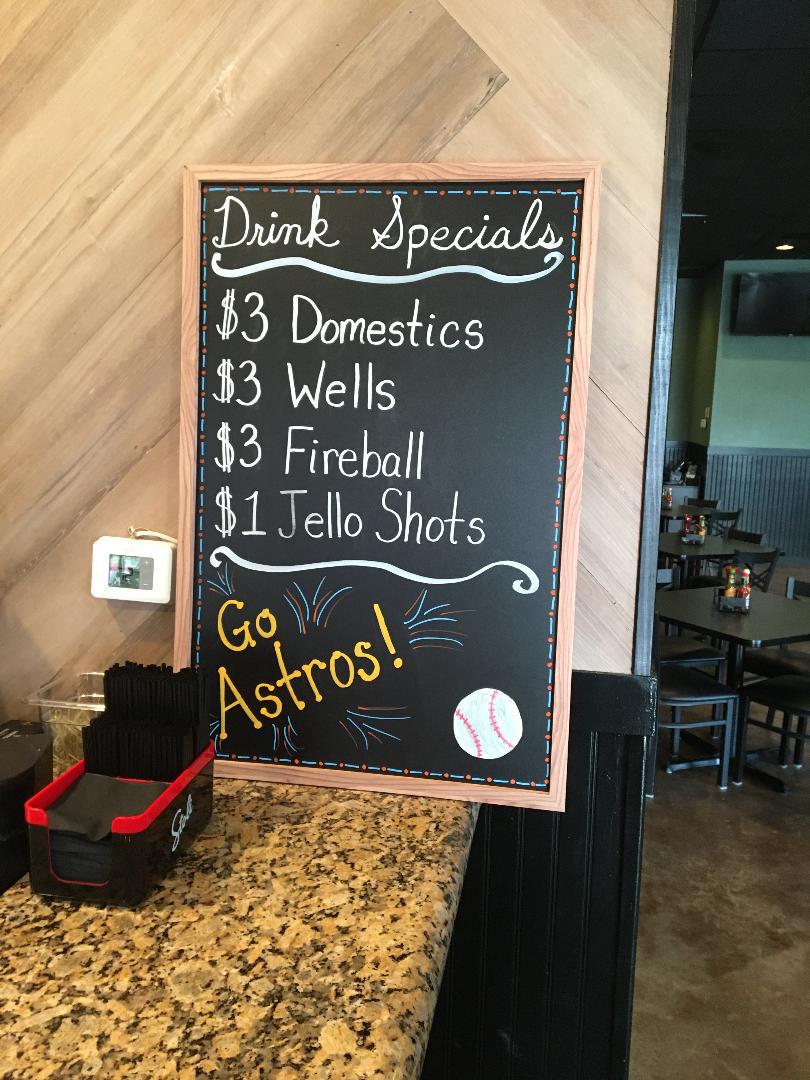 Drink Specials
$3 Domestics
$3 Wells
$3 Fireball
$1 Jello Shots
Go
Astros!
Stoli